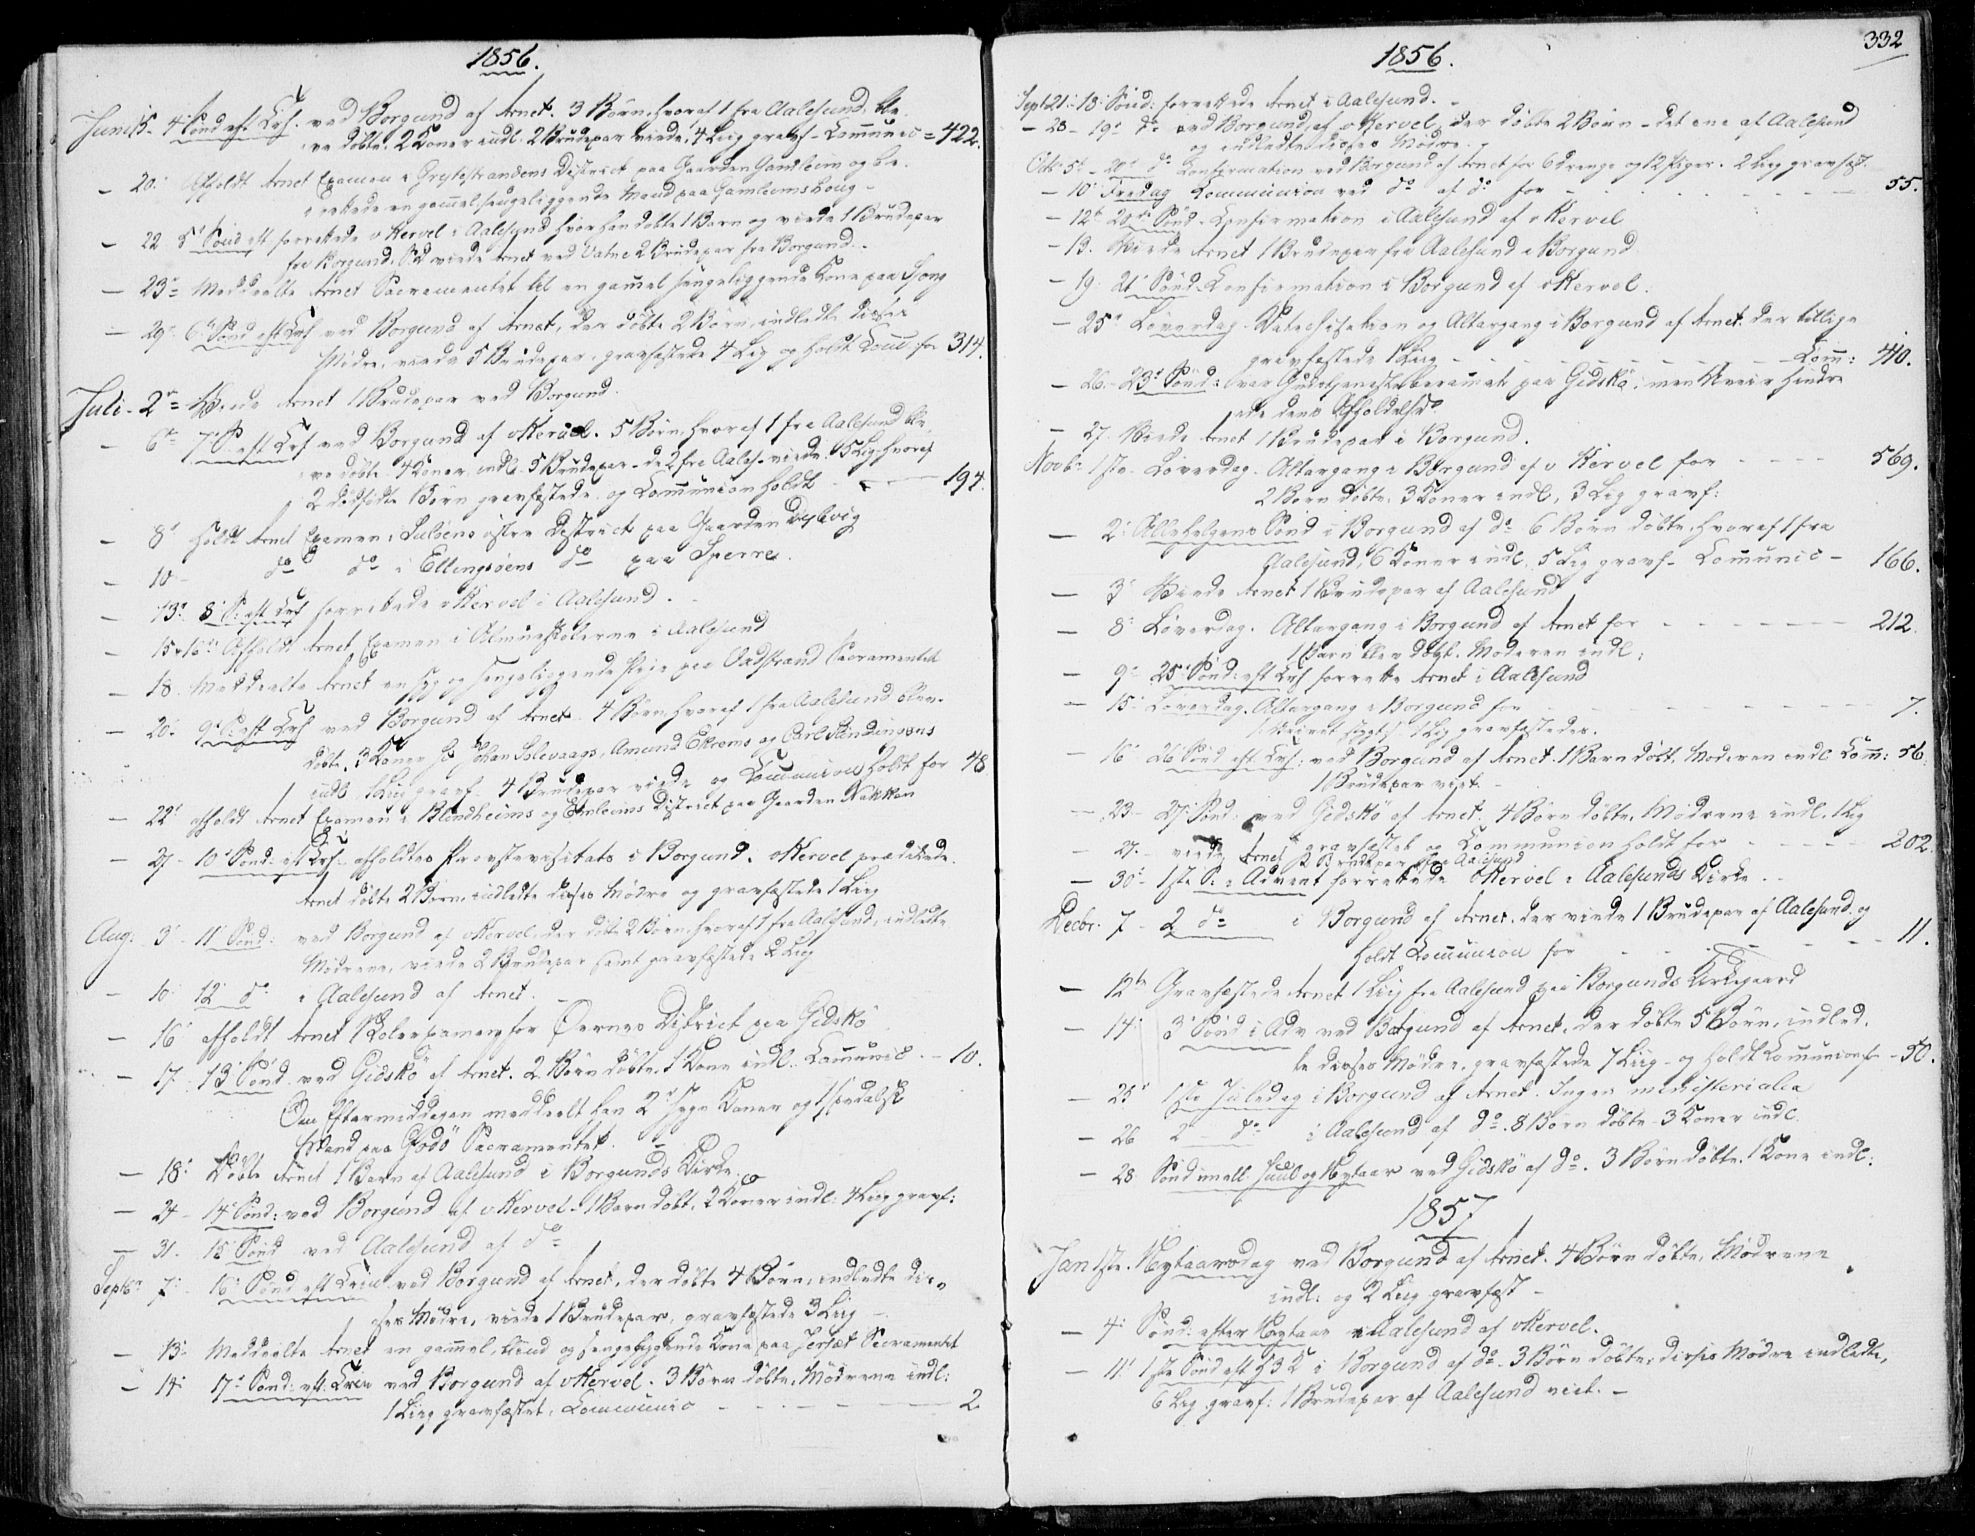 1856.
Juni 15- 4 Sönd eft. Trf. ved Borgund af Arnet. 3 Börn, hvoraf 1 fra Aalesund, ble
ve döbte, 2 Koner indl. 2 Brudepar viede, 4 Liig gravf- Communic = 422.
- 20. Afholdt Arnet Examen i District paa Gaarden Gamleem og be-
rettede en gammel sengeliggende Mand paa Gamleemshoug -
- 22 5t Sönd eft. forrettede v Kervel i Aalesund hvor han döbte 1 Barn og viede 1 Brudepar
fra Borgund. viede Arnet ved Vatne 2 Brudepar fra Borgund.
- 23- Meddeelte Arnet Sacramentet til en gammel sengeliggende Kone paa
- 29. 6t Sönd eft Trf ved Borgund af Arnet, der döbte 2 Börn, indledte disses
Mödre, viede 5 Brudepar, gravfæstede 4 Liig og holdt Com for 314.
Juli- 2- Viede Arnet 1 Brudepar ved Borgund.
- 6- 7 S. eft Trf ved Borgund af v Kervel. 5 Börn, hvoraf 1 fra Aalesund ble-
ve döbte 4 Koner indl. 5 Brudepar- de 2 fra Aales- viede. 5 Liig hvoraf
2 dödfödte Börn gravfæstede og Communion holdt - 194.
- 8t Holdt Arnet Examen i Sulöens östre District paa Gaarden
- 10- do do i Ellingsöens do paa Sperre.
- 13t 8 S. eft Trf forrettede v Kervel i Aalesund.
- 15-16 Afholdt Arnet Examen i Almueskolerne i Aalesund
- 18. Meddeelte Arnet en syg og sengeliggende Pige paa Vadstrand Sacramentet
- 20. 9 S. eft Trf ved Borgund af Arnet. 4 Börn, hvoraf 1 fra Aalesund blev-
döbt, 3 Koner Johan Slevaags, Amund Ekrems og
indl. Liig gravf. 4 Brudepar viede og Communion holdt for 48
- 22t afholdt Arnet Examen i Blindheims og Emleems District paa Gaarden Nakken
- 27- 10t Sönd. eft Trf. afholdtes Provstevisitats i Borgund. v Kervel prædikede.
Arnet döbte 2 Börn, indledte disses Mödre og gravfæstede 1 Liig
Aug: 3t 11t Sönd: ved Borgund af v Kervel, der döbte 2 Börn, hvoraf 1 fra Aalesund, indledte
Mödrene, viede 2 Brudepar samt gravfæstede 2 Liig
- 10. 12t do i Aalesund af Arnet.
- 16t afholdt Arnet Skoleexamen for Öernes District paa Gidskö
- 17 13 Sönd. ved Gidskö af Arnet. 2 Börn döbte, 1 Kone indl. Communic. - 10.
Om Eftermiddagen meddeelt han 2 syge Koner og 1
Mand paa Godö Sacramentet.
- 18: Döbte Arnet 1 Barn af Aalesund i Borgunds Kirke.
- 24- 14 Sönd: ved Borgund af v Kervel. 1 Barn döbt, 2 Koner indl: 4 Liig gravf:
- 31. 15t Sönd ved Aalesund af do
Septbr 7. 16t Sönd eft Trin ved Borgund af Arnet, der döbte 4 Börn, indledte dis-
ses Mödre, viede 1 Brudepar, gravfæstede 3 Liig -
- 13. Meddeelte Arnet en gammel, blind og sengeliggende Kone paa Sacramentet
- 14: 17t Sönd: eft. Trin ved Borgund af v Kervel. 3 Börn döbte, Mödrene indl:
1 Liig gravfæstet, Communic - - - 2
332
1856.
Sept 21: 18: Sönd: forrettede Arnet i Aalesund. -
- 28- 19t do ved Borgund af v Kervel, der döbte 2 Börn - det ene af Aalesund
og indledte disses Mödre.
Octb. 5t - 20t do Confirmation ved Borgund af Arnet for 6 drenge og 12 Piger. 2 Liig gravfæst.
- 10t Fredag Communion ved do af do for - - - 55.
- 12t Sönd. Confirmation i Aalesund af v Kervel
- 13. Viede Arnet 1 Brudepar fra Aalesund i Borgund
- 19: 21 Sönd Confirmation i Borgund af v Kervel.
- 25t Löverdag. Katechisation og Altargang i Borgund af Arnet, der tillige
gravfæstede 1 Liig - - - - Com: 40.
- 26- 23t Sönd: var Gudstjeneste berammet paa Gidskö, men Uveir hindre
ede dens Afholdelse
- 27. Viede Arnet 1 Brudepar i Borgund.
Novbr 1ste. Löverdag. Altargang i Borgund af v Kervel for - - - 569.
2 Börn döbte, 3 Koner indl, 3 Liig gravf:
- 2: Allehelgens Sönd i Borgund af do 6 Börn döbte, hvoraf 1 fra
Aalesund, 6 Koner indl, 5 Liig gravf- Communic - 166.
- 3t Viede Arnet 1 Brudepar af Aalesund
- 8t Löverdag. Altargang i Borgund af Arnet for - - - 212
1 Barn blev döbt. Moderen indl:
- 9t 25t Sönd: eft Trf forrette Arnet i Aalesund
- 15: Löverdag. Altargang i Borgund for - - - 7.
1 Liig gravfæstedes.
- 16 26 Sönd eft. Trf. ved Borgund af Arnet. 1 Barn döbt, Moderen indl. Com: 56.
1 Brudepar viet. -
- 23- 27 Sönd: ved Gidskö af Arnet. 4 Börn döbte, Mödrene indl. 1 Liig
gravfæstet og Communion holdt for - - - 202.
- 27.- viede Arnet 2 Brudepar fra Aalesund
- 30t- 1ste S: i Advent forrettede v Kervel i Aalesunds Kirke.
Decbr. 7- 2 do i Borgund af Arnet, der viede 1 Brudepar af Aalesund og
holdt Communion for - - - 11.
- 12te Gravfæstede Arnet 1 Liig fra Aalesund paa Borgunds Kirkegaard
- 14: 3t Sönd i Adv ved Borgund af Arnet, der döbte 5 Börn, indled.
te disses Mödre, gravfæstede 7 Liig og holdt Communion f- 50.
- 25t 1ste Juledag i Borgund af Arnet. Ingen ministerialia
- 26 2 - do i Aalesund af do. 8 Börn döbte, 3 Koner indl.
- 28 Sönd mell. Juul og Nytaar ved Gidskö af do. 3 Börn döbte, 1 Kone indl:
1857
Jan 1ste. Nytaarsdag ved Borgund af Arnet. 4 Börn döbte, Mödrene
indl: og 2 Liig gravfæst -
- 4: Sönd. efter Nytaar i Aalesund af v Kervel.
- 11t 1ste Sönd eft H3K i Borgund af do. 3 Börn döbte, disses Mödre indledte,
6 Liig gravf: 1 Brudepar af Aalesund viet. -